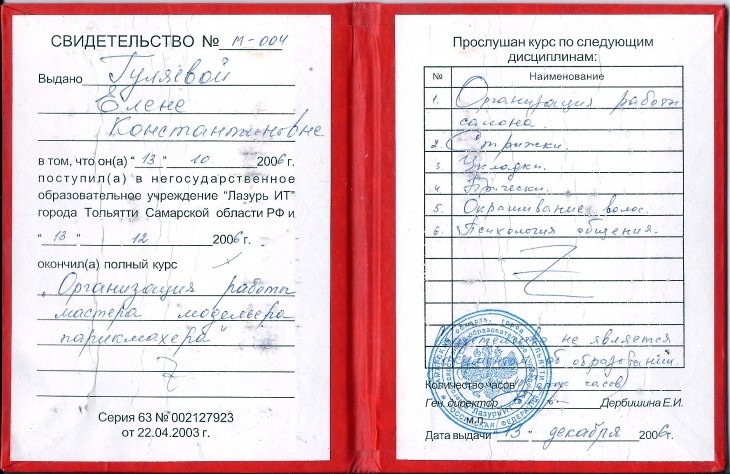 СВИДЕТЕЛЬСТВО № М-004
Выдано Гуляевой
Елене
Константиновне
в том, что он(а) "13" 10 2006 г.
поступил(а) в негосударственное
образовательное учреждение "Лазурь ИТ"
города Тольятти Самарской области РФ и
"13" 12 2006 г.
окончил(а) полный курс
"Организация работы
мастера модельера
парикмахера"
Серия 63 № 002127923
от 22.04.2003 г.
Прослушан курс по следующим
дисциплинам:
№ Наименование
1. Организация работы
салона.
2. Стрижки.
3. Укладки.
4. Прически.
5. Окрашивание волос.
6. Психология общения.
не является
об образовании.
Количество часов часов)
Ген. директор Дербишина Е.И.
М.П.
Дата выдачи "13" декабря 2006 г.